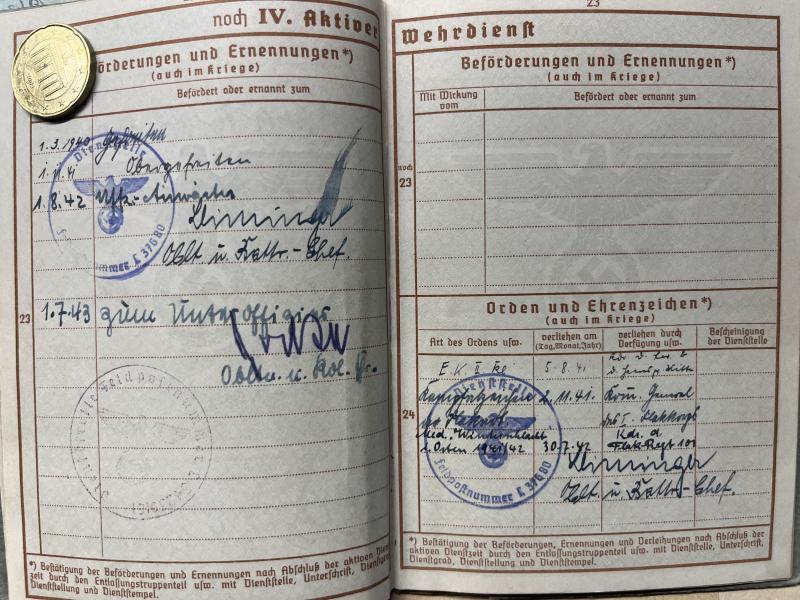 noch IV. Aktiver
Beförderungen und Ernennungen*)
(auch im Kriege)
Befördert oder ernannt zum
1.3.1940 Gefreiten
1.11.41 Obergefreiten
1.8.42 Uffz.-Anwärter
Oblt u. Battr.-Chef.
Dienststelle
Feldpostnummer L 37680
23
1.7.43 zum Unteroffizier
*) Bestätigung der Beförderungen und Ernennungen nach Abschluß der aktiven Dienst-
zeit durch den Entlassungstruppenteil usw. mit Dienststelle, Unterschrift, Dienstgrad,
Dienststellung und Dienststempel.
23
Wehrdienst
Beförderungen und Ernennungen*)
(auch im Kriege)
Mit Wirkung vom
Befördert oder ernannt zum
noch
23
Orden und Ehrenzeichen*)
(auch im Kriege)
Art des Ordens usw.
verliehen am (Tag, Monat, Jahr)
verliehen durch Verfügung usw.
Bescheinigung der Dienststelle
E.K. II Kl 5.8.41
Kampfabzeichen 2.11.41. Kom. General
der Flakart. des I. Flakkorps
Med. "Winterschlacht Kdr. d
i. Osten 1941/42 30.7.42 Flak Regt 101
24
Oblt u. Battr.-Chef.
Dienststelle
Feldpostnummer L 37680
*) Bestätigung der Beförderungen, Ernennungen und Verleihungen nach Abschluß der
aktiven Dienstzeit durch den Entlassungstruppenteil usw. mit Dienststelle, Unterschrift,
Dienstgrad, Dienststellung und Dienststempel.